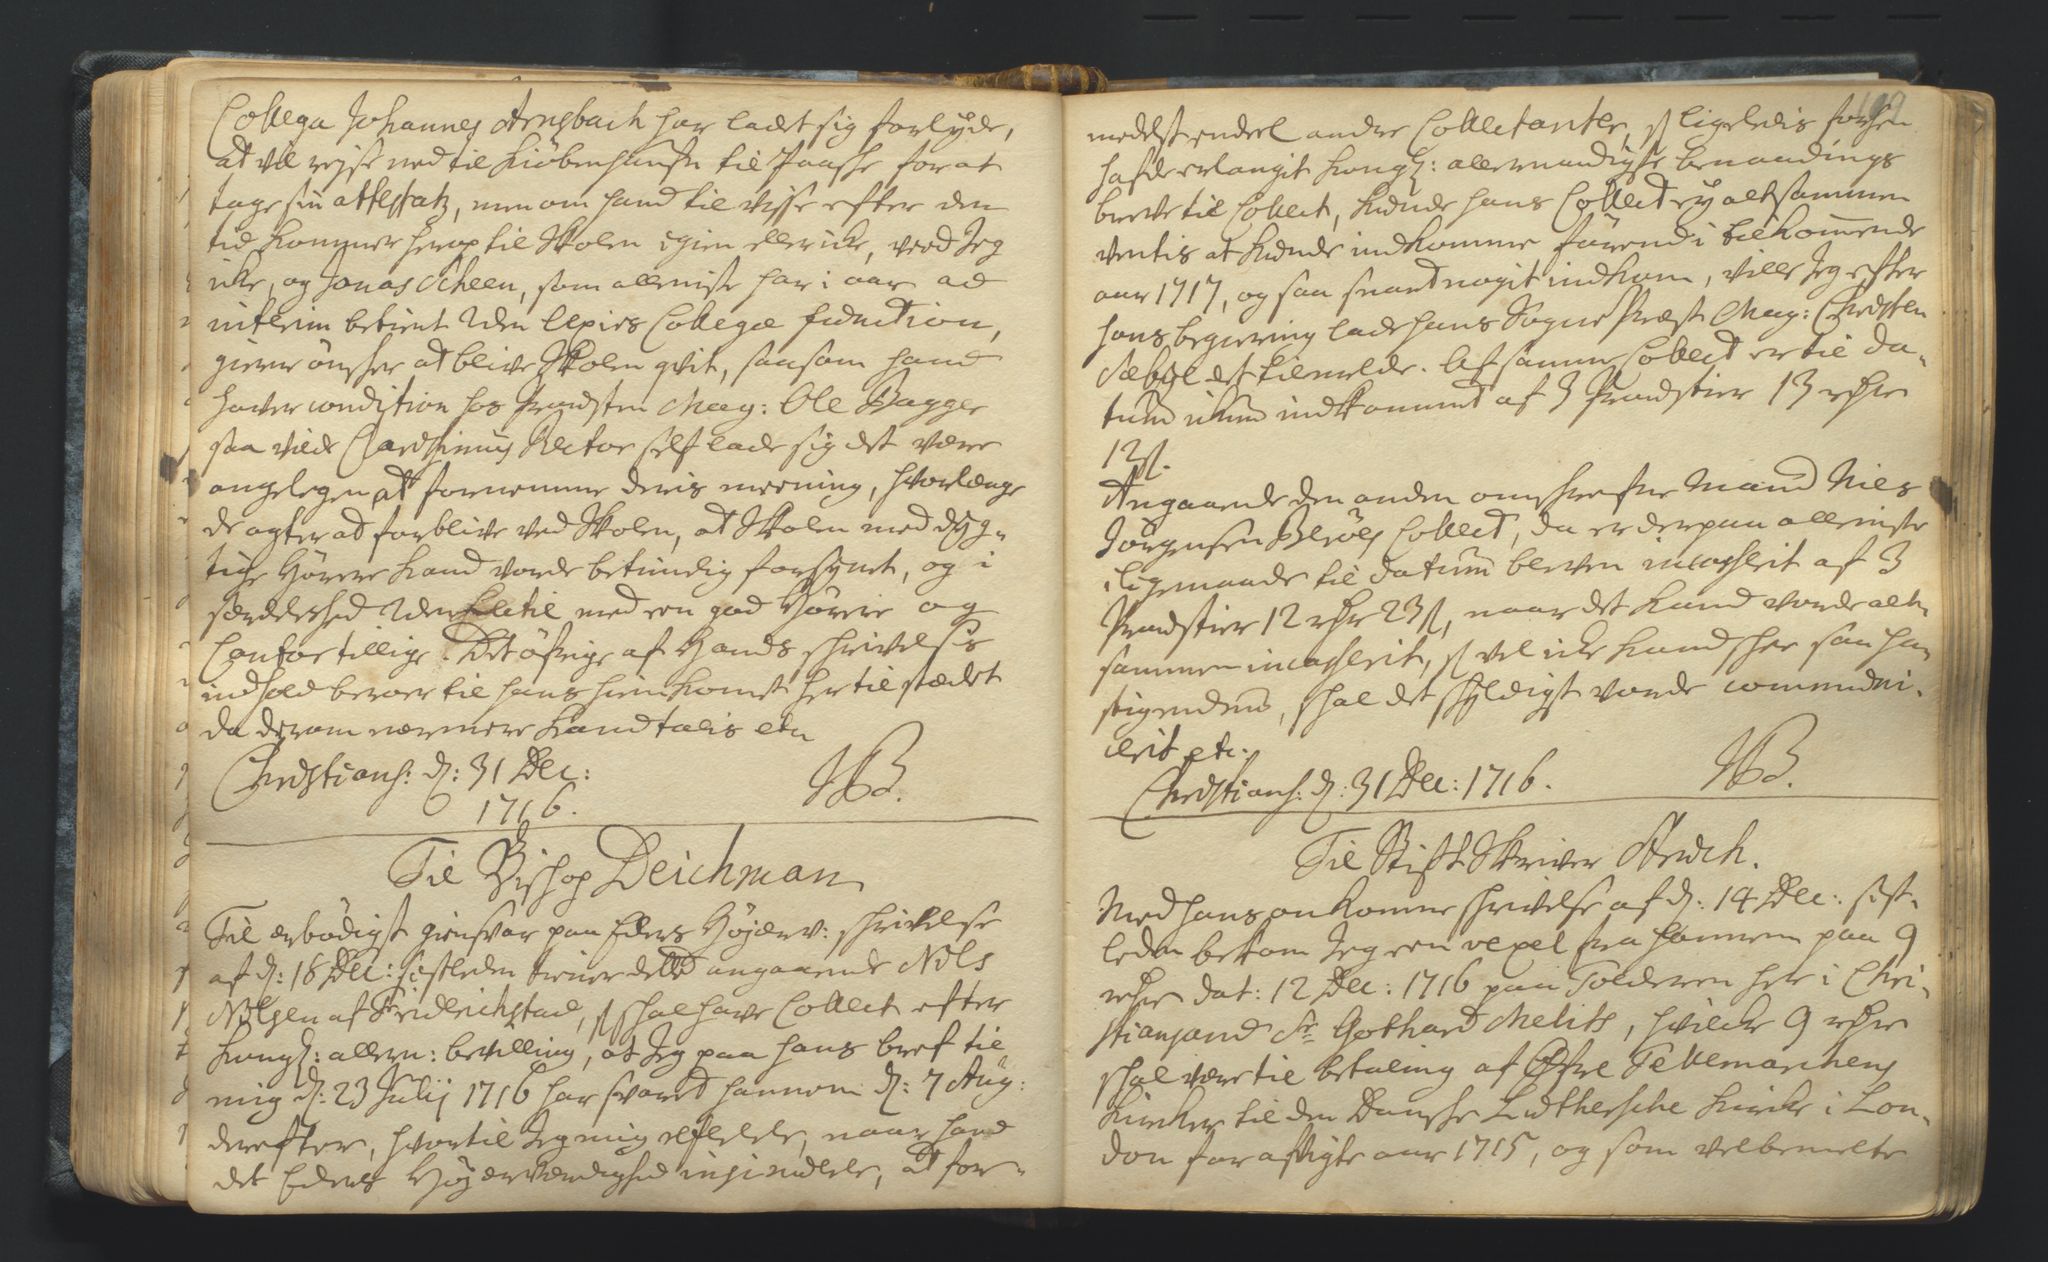 Collega Johannes Arnsbach har ladet sig forlyde,
at vill rejse ned til Kiøbenhaufn til Paaske for at
tage sin attestatz, men om hand til visse efter den
tid kommer herop til Skolen igien eller icke, veed Jeg
icke, og Jonas Scheen, som alleniste har i aar ad
interim betient den Collegæ function,
gierne ønsker at blive Skolen qvit, saasom hand
haver condition hos Prousten Mag: Ole Bagger
saa vilde Clarissimus Rector self lade sig det være
angelegen, at fornemme deris meening, hvorlænge
de agter at forblive ved Skolen, at Skolen med dyg-
tige Hørere kand vorde betimelig forsynet, og i
særdelished den med een god Hører og
Cantor tillige. Det øfrige af Hands skrivelsis
indhold beroer til hans hiemkomst her til stædet
da derom nærmere kand talis etc
Christians: d: 31 Dec:
1716.
JB.
Til Bishop Deichman
Til ærbødigst giensvar paa Eders Højærv: skrivelse
af d: 16 Dec: sistleden tiener dette angaaende Niels
Nilsen af Fridrichstad, som skal have Collect efter
Kongl: allern: bevilling, at Jeg paa hans bref til
mig d: 23 Julij 1716 har svaret hannem d: 7 Aug:
derefter, hvortil Jeg mig, naar hand
det Eders Højærværdighed insinuerer, at for-
169
medelst endeel andre Collectanter, som ligeledis forhen
hafde erlangit Kongl: allernaadigste benaadings
breve til Collect, kunde hans Collect ey altsammen
ventis at kunde indkomme førend i tilkommende
aar 1717, og saa snart nogit indkom, ville Jeg efter
hans begiering lade hans Sogne Præst Mag: Christen
det tilmelde. Af samme Collect er til da-
tum ickun indkommet af 3 Proustier 13 rdr
12 s.
Angaaende den anden omskrefne Mand Niels
Jørgensen Collect, da er derpaa alleniste
ligemaade til datum bleven incasserit af 3
Proustier 12 rdr 23 s, naar det kand vorde alt-
sammen incasserit, som vel icke kand skee saa ha-
stigendes, skal det skyldigst vorde communi-
cerit etc:
Christians: d: 31 Dec: 1716.
JB.
Til Stift Skriver
Med hans ankomne skrivelse af d: 14 Dec: sist-
leden bekom Jeg een vexel fra hannem paa 9
rdr dat: 12 Dec: 1716 paa Tolderen her i Chri-
stiansand Sr Gothard, hvilcke 9 rdr
skal være til betaling af Øfre Tellemarchens
Kircker til den Danske Lutherske Kircke i Lon-
don for afvigte aar 1715, og som velbemelte